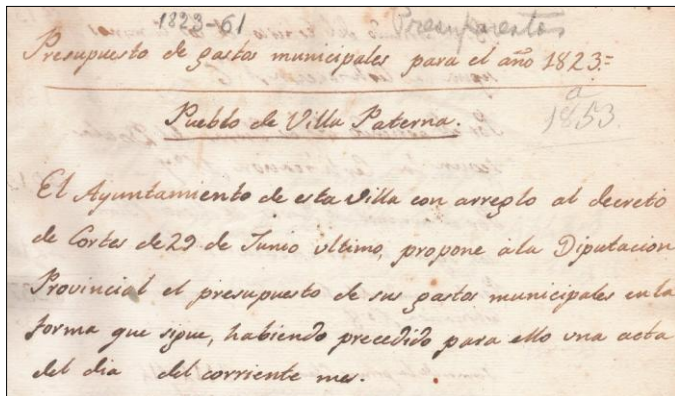 1823-61
Presupuestos
Presupuesto de gastos municipales para el año 1823.=
a
1853.
Pueblo de Villa Paterna.
El Ayuntamiento de esta Villa con arreglo al decreto
de Cortes de 29 de Junio ultimo, propone ála Diputacion
Provincial el presupuesto de sus gastos municipales en la
forma que sigue, habiendo precedido para ello una acta
del dia del corriente mes.